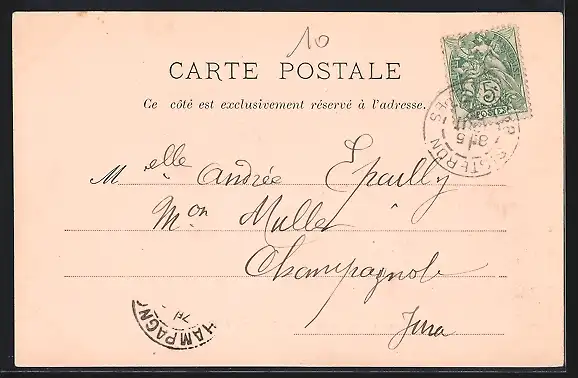 10
CARTE POSTALE
Ce côté est exclusivement réservé à l'adresse.
5c
POSTES
SISTERON
Melle Andrée Epailly
Mon Muller
Champagnole
Jura
CHAMPAGN